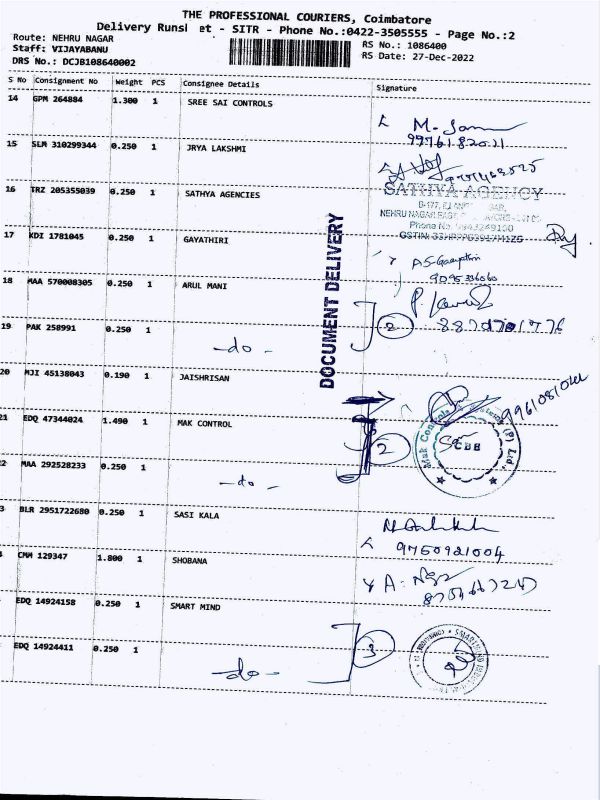 THE PROFESSIONAL COURIERS, Coimbatore
Delivery Runsheet - SITR - Phone No.:0422-3505555 - Page No.:2
Route: NEHRU NAGAR
Staff: VIJAYABANU
DRS No.: DCJB108640002
RS No.: 1086400
RS Date: 27-Dec-2022
S No Consignment No Weight PCS Consignee Details Signature
14 GPM 264884 1.300 1 SREE SAI CONTROLS
15 SLM 310299344 0.250 1 JRYA LAKSHMI
16 TRZ 205355039 0.250 1 SATHYA AGENCIES
SATHYA AGENCY
17 KDI 1781045 0.250 1 GAYATHIRI
18 MAA 570008305 0.250 1 ARUL MANI
19 PAK 258991 0.250 1 -do- 2
DOCUMENT DELIVERY
20 MJI 45138043 0.190 1 JAISHRISAN
21 EDQ 47344024 1.490 1 MAK CONTROL 2
CBE
2 MAA 292528233 0.250 1 -do-
3 BLR 2951722680 0.250 1 SASI KALA
9750921004
CMM 129347 1.800 1 SHOBANA
EDQ 14924158 0.250 1 SMART MIND
EDQ 14924411 0.250 1 -do- 3